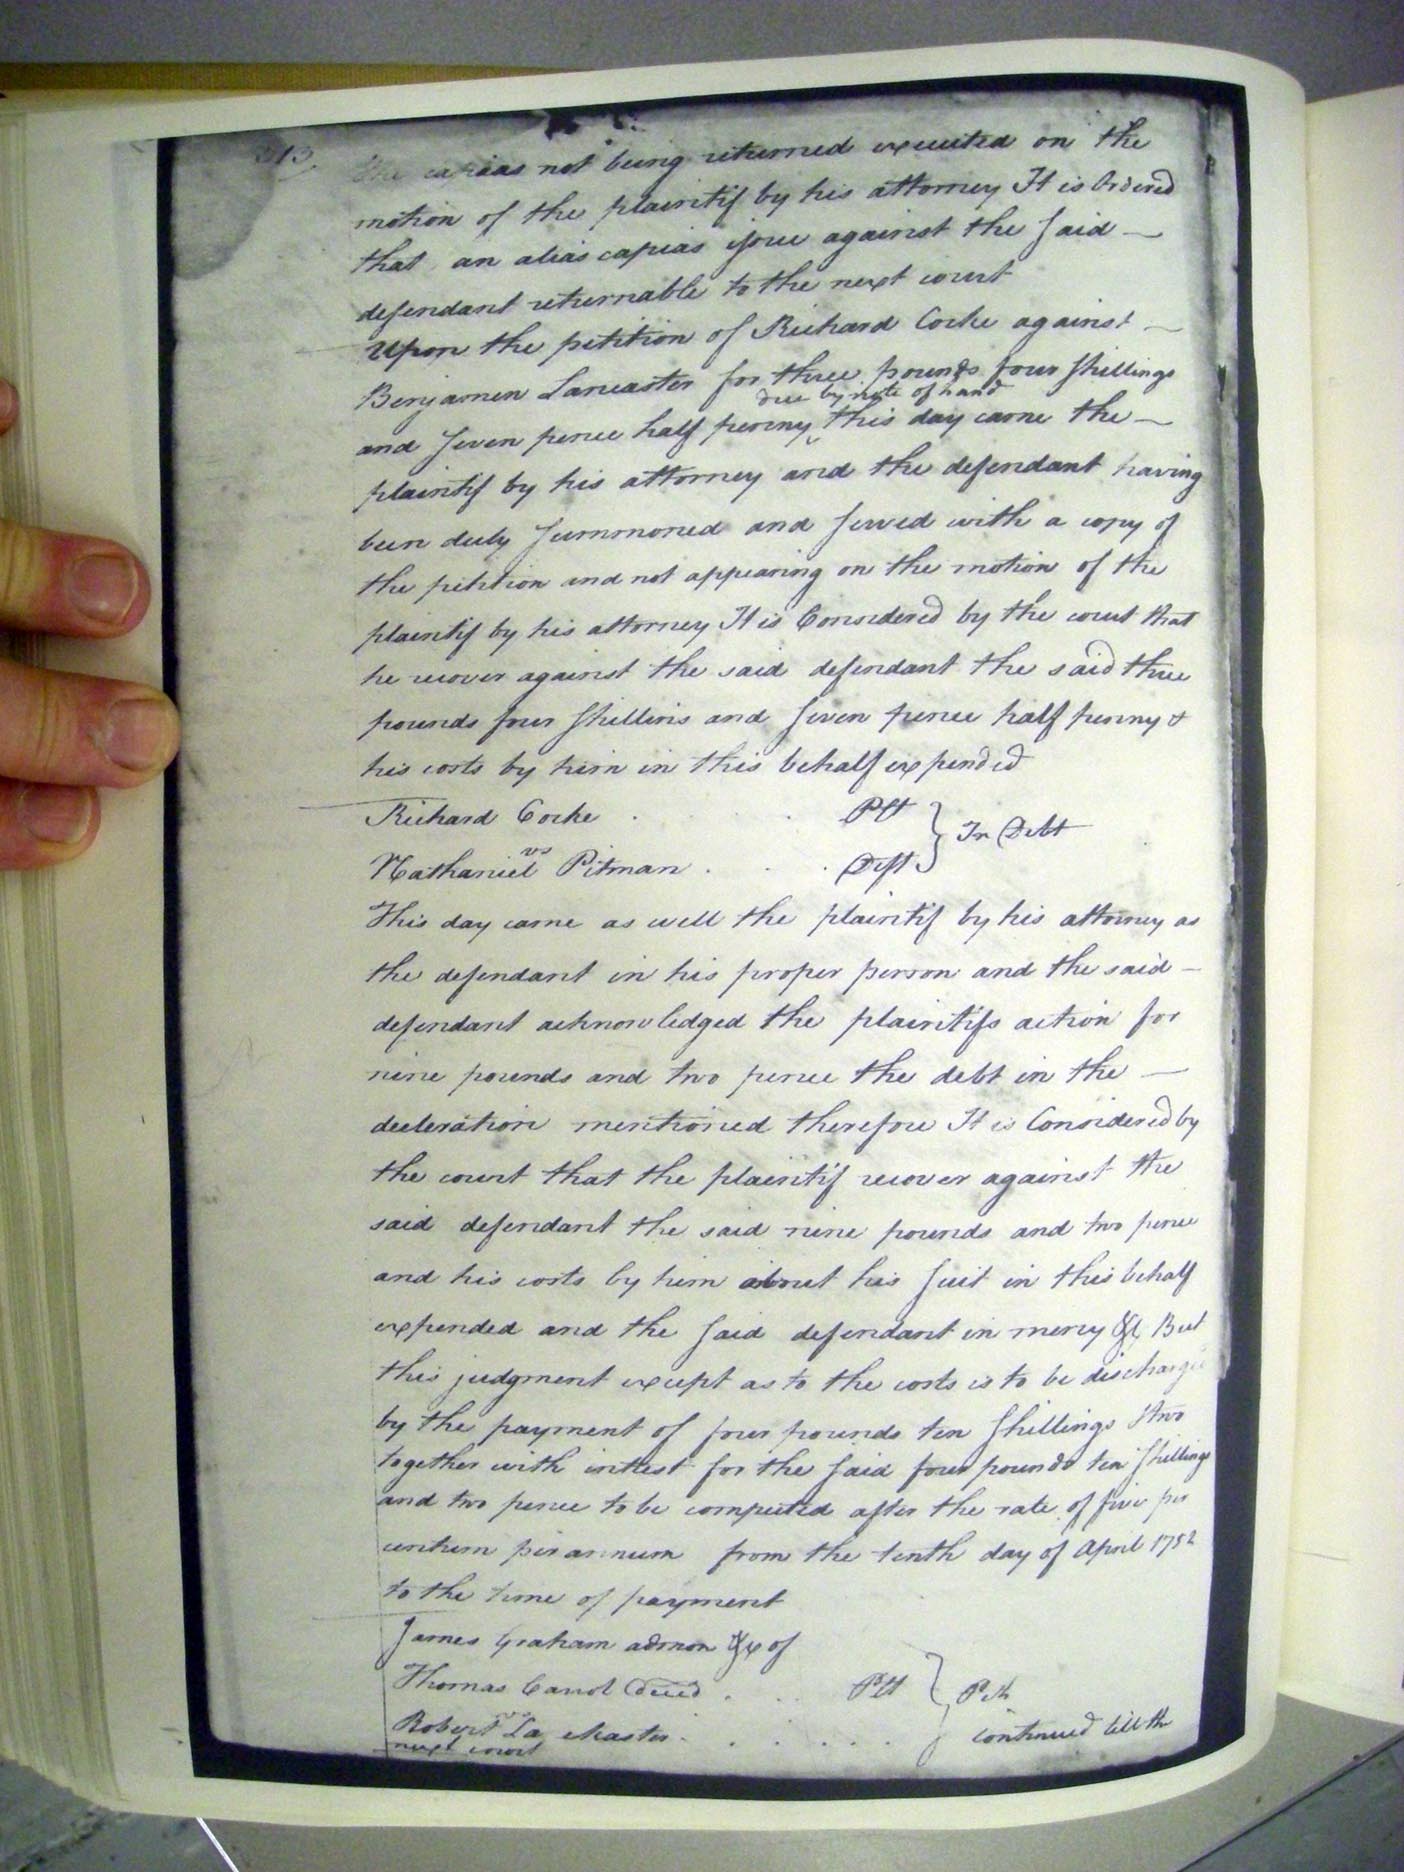 313
The capias not being returned executed on the
motion of the plaintif by his attorney It is Ordered
that an alias capias issue against the said
defendant returnable to the next court
Upon the petition of Richard Cocke against
Benjamen Lancaster for three pounds four shillings
due by note of hand
and seven pence half penny this day came the
plaintif by his attorney and the defendant having
been duly summoned and served with a copy of
the petition and not appearing on the motion of the
plaintif by his attorney It is Considered by the court that
he recover against the said defendant the said three
pounds four shillins and seven pence half penny &
his costs by him in this behalf expended
Richard Cocke . . Plt } In Debt
vs
Nathaniel Pitman . . . Deft
This day came as well the plaintif by his attorney as
the defendant in his proper person and the said
defendant acknowledged the plaintifs action for
nine pounds and two pence the debt in the
decleration mentioned therefore It is Considered by
the court that the plaintif recover against the
said defendant the said nine pounds and two pence
and his costs by him about his suit in this behalf
expended and the said defendant in mercy &c But
this judgment except as to the costs is to be discharged
by the payment of four pounds ten shillings & two
together with intrest for the said four pounds ten shillings
and two pence to be computed after the rate of five per
centum per annum from the tenth day of April 1782
to the time of payment
James Graham admon &c of
Thomas Carrol Decd . . . Plt } Pet
vs
Robert La Master . . . . . . continued till the
next court